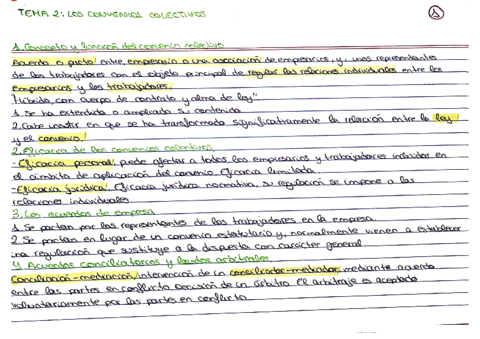 TEMA 2: LOS CONVENIOS COLECTIVOS
1. Concepto y función del convenio colectivo
Acuerdo o pacto entre, empresario o una asociación de empresarios, y, unos representantes
de los trabajadores con el objeto principal de regular las relaciones individuales entre los
empresarios y los trabajadores.
"Híbrido, con cuerpo de contrato y alma de ley"
1. Se ha extendido o ampliado su contenido.
2. Cabe insistir en que se ha transformado significativamente la relación entre la ley
y el convenio.
2. Eficacia de los convenios colectivos.
-Eficacia personal, puede afectar a todos los empresarios y trabajadores incluidos en
el ámbito de aplicación del convenio. Eficacia limitada
-Eficacia jurídica. Eficacia jurídica normativa, su regulación se impone a las
relaciones individuales
3. Los acuerdos de empresa
1. Se pactan por los representantes de los trabajadores en la empresa
2. Se pactan en lugar de un convenio estatutario y, normalmente vienen a establecer
una regulación que sustituye a la dispuesta con carácter general
4. Acuerdos conciliatorios y laudos arbitrales
Conciliación-mediación, intervención de un conciliador-mediador, mediante acuerdo
entre las partes en conflicto decisión de un árbitro el arbitraje es aceptado
voluntariamente por las partes en conflicto